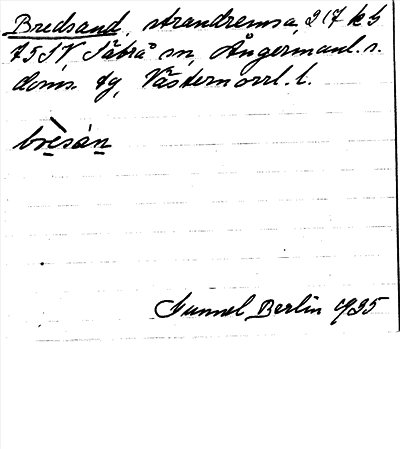 Bredsand, strandremsa, 217 kb
75 SV Säbrå sn, Ångermanl. s.
doms. tg, Västernorrl. l.
brèsán
Gunnel Berlin 1935